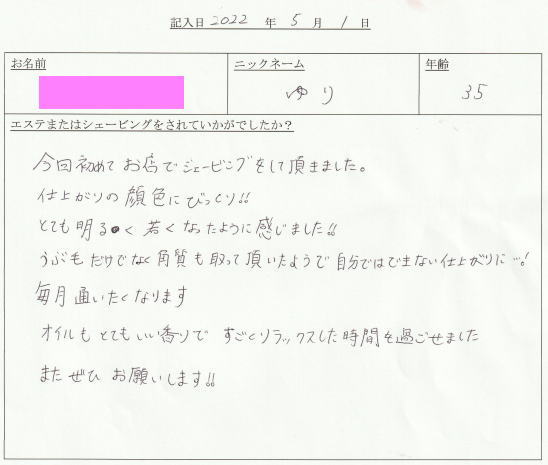 記入日 2022 年 5 月 1 日
お名前 ニックネーム 年齢
ゆり 35
エステまたはシェービングをされていかがでしたか？
今回初めてお店でシェービングをして頂きました。
仕上がりの顔色にびっくり!!
とても明るく若くなったように感じました!!
うぶ毛だけでなく角質も取って頂いたようで自分ではできない仕上がりに…!
毎月通いたくなります
オイルもとてもいい香りですごくリラックスした時間を過ごせました
またぜひお願いします!!